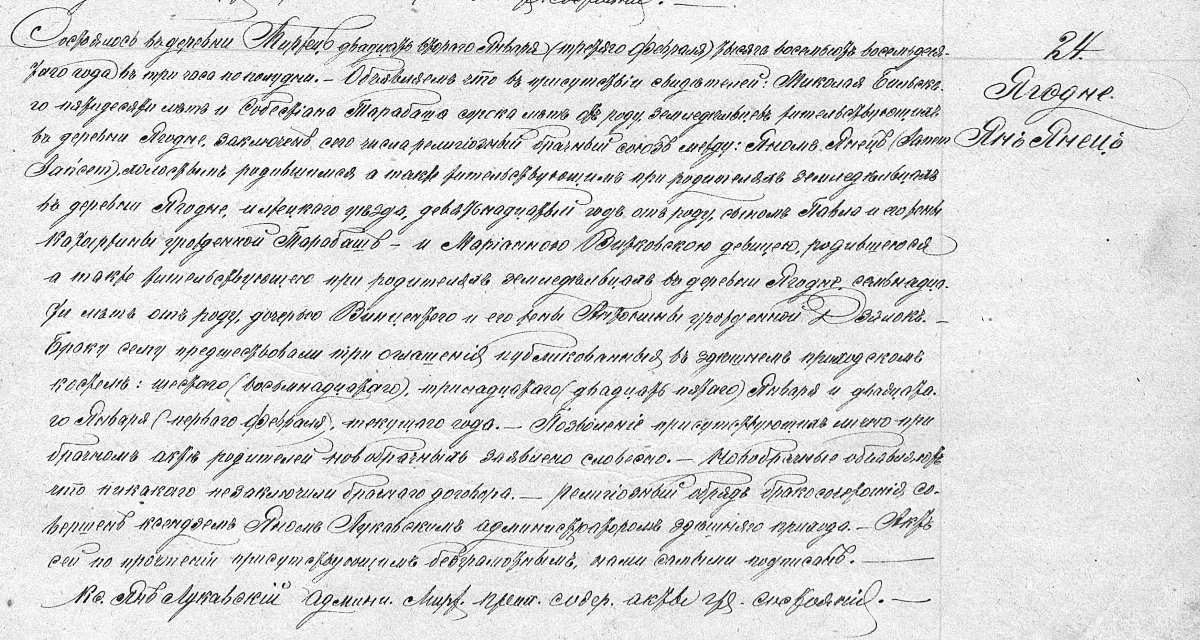 24.
Ягодне.
Янъ Янецъ
Состоялось въ деревни двадцать втораго Января (третяго февраля) тысяча восемьсотъ восемьдеся-
таго года въ три часа по полудни. — Объявляемъ что въ присутствіи свидѣтелей: Николая Бильска-
го пятидесяти лѣтъ и Собестіана Тарабаша сорока лѣтъ отъ роду, земледельцевъ жительствующихъ
въ деревни Ягодне, заключенъ сего числа религіозный брачный союзъ между: Яномъ Янецъ (Jannem
холостымъ родившимся а также жительствующимъ при родителяхъ земледѣльцахъ
въ деревни Ягодне, уѣзда, девятьнадцатый годъ отъ роду, сыномъ Павла и его жены
Катаржины урожденной Тарабашъ — и Маріанною Витковскою девицею, родившеюся
а также жительствующею при родителяхъ земледѣльцахъ въ деревни Ягодне, семьнадца-
ти лѣтъ отъ роду, дочерью Винцентаго и его жены Антонины урожденной Дзялокъ. —
Браку сему предшествовали три оглашенія публикованныя въ здѣшнемъ приходскомъ
костелѣ: шестаго (восьмнадцатаго), тринадцатаго (двадцать пятаго) Января и двадцата-
го Января (перваго февраля), текущаго года. — Позволеніе присутствующихъ лично при
брачномъ актѣ родителей новобрачныхъ заявлено словесно. — Новобрачные объявляютъ
что никакаго незаключили брачнаго договора. — Религіозный обрядъ бракосочетанія со-
вершенъ ксендземъ Яномъ Лукавскимъ администраторомъ здѣшняго прихода. — Актъ
сей по прочтеніи присутствующимъ безграмотнымъ, нами самыми подписанъ. —
Кс. Янъ Лукавскій админи. содер. акты гр. состоянія. —